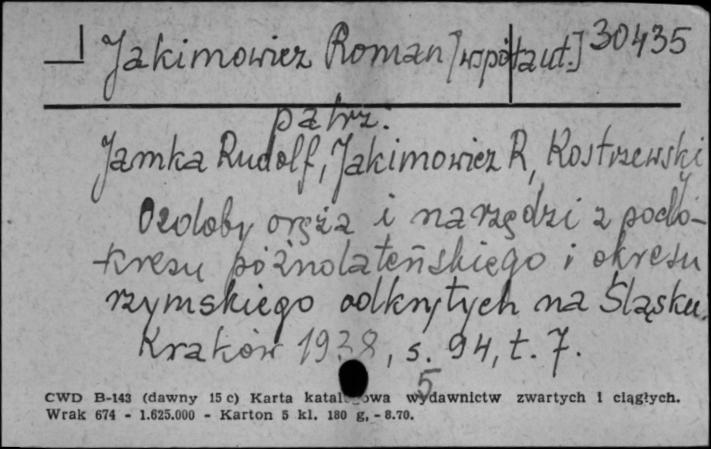 Jakimowicz Roman [współaut.] 30435
patrz:
Jamka Rudolf, Jakimowicz R, Kostrzewski
Ozdoby oręża i narzędzi z podo-
kresu późnolateńskiego i okresu
rzymskiego odkrytych na Śląsku.
Kraków 1938, s. 94, t. 7.
5
CWD B-143 (dawny 15 c) Karta katalogowa wydawnictw zwartych i ciągłych.
Wrak 674 - 1.625.000 - Karton 5 kl. 180 g, - 8.70.